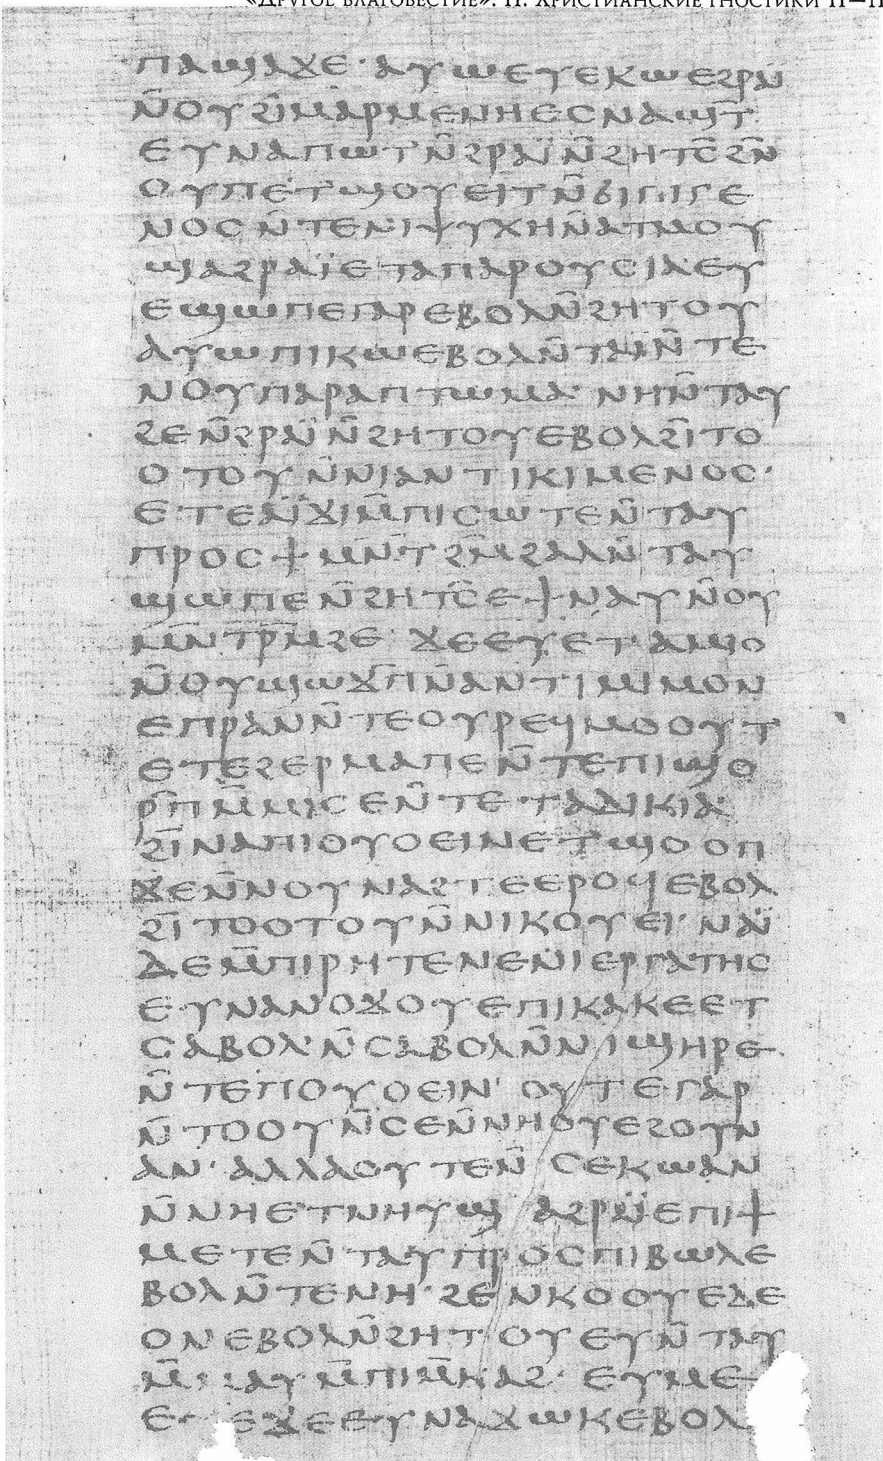 «ДРУГОЕ БЛАГОВЕСТИЕ». II. ХРИСТИАНСКИЕ ГНОСТИКИ II—II
ⲡⲁϣⲁϫⲉ· ⲁⲩⲱ ⲉⲩⲉⲕⲱ ⲉϩⲣⲁⲓ̈
ⲛ̄ⲟⲩϩⲓ̈ⲙⲁⲣⲙⲉⲛⲏ ⲉⲥⲛⲁϣⲧ̄
ⲉⲩⲛⲁⲡⲱⲧ ⲛ̄ϩⲣⲁⲓ̈ ⲛ̄ϩⲏⲧⲥ̄ ϩⲛ̄
ⲟⲩⲡⲉⲧϣⲟⲩⲉⲓⲧ ⲛ̄ϭⲓ ⲡⲓⲅⲉ
ⲛⲟⲥ ⲛ̄ⲧⲉ ⲛⲓⲯⲩⲭⲏ ⲛ̄ⲁⲧⲙⲟⲩ
ϣⲁϩⲣⲁⲓ̈ ⲉⲧⲁⲡⲁⲣⲟⲩⲥⲓⲁ ⲉⲩ
ⲉϣⲱⲡⲉ ⲅⲁⲣ ⲉⲃⲟⲗ ⲛ̄ϩⲏⲧⲟⲩ
ⲁⲩⲱ ⲡⲓⲕⲱ ⲉⲃⲟⲗ ⲛ̄ⲧⲁⲓ̈ ⲛ̄ⲧⲉ
ⲛⲟⲩⲡⲁⲣⲁⲡⲧⲱⲙⲁ· ⲛⲏ ⲛ̄ⲧⲁⲩ
ϩⲉ ⲛ̄ϩⲣⲁⲓ̈ ⲛ̄ϩⲏⲧⲟⲩ ⲉⲃⲟⲗ ϩⲓ̈ⲧⲟ
ⲟⲧⲟⲩ ⲛ̄ⲛⲓⲁⲛⲧⲓⲕⲓⲙⲉⲛⲟⲥ·
ⲉⲧⲉⲁⲓ̈ϫⲓ ⲙ̄ⲡⲓⲥⲱⲧⲉ ⲛ̄ⲧⲁⲩ
ⲡⲣⲟⲥ ϯⲙⲛ̄ⲧϩⲙ̄ϩⲁⲗ ⲛ̄ⲧⲁⲩ
ϣⲱⲡⲉ ⲛ̄ϩⲏⲧⲥ̄ ⲉϯ ⲛⲁⲩ ⲛ̄ⲟⲩ
ⲙⲛ̄ⲧⲣⲙ̄ϩⲉ· ϫⲉ ⲉⲩⲉⲧⲁⲙⲓⲟ
ⲛ̄ⲟⲩϣⲱϫⲡ̄ ⲛ̄ⲁⲛⲧⲓⲙⲓⲙⲟⲛ
ⲉⲡⲣⲁⲛ ⲛ̄ⲧⲉ ⲟⲩⲣⲉϥⲙⲟⲟⲩⲧ
ⲉⲧⲉ ϩⲉⲣⲙⲁ ⲡⲉ ⲛ̄ⲧⲉ ⲡⲓϣⲟ
ⲣⲡ̄ ⲙ̄ⲙⲓⲥⲉ ⲛ̄ⲧⲉ ⲧⲁⲇⲓⲕⲓⲁ
ϩⲓ̈ⲛⲁ ⲡⲓⲟⲩⲟⲉⲓⲛ ⲉⲧϣⲟⲟⲡ
ϫⲉⲛⲛⲟⲩⲛⲁϩⲧⲉ ⲉⲣⲟϥ ⲉⲃⲟⲗ
ϩⲓ̈ⲧⲟⲟⲧⲟⲩ ⲛ̄ⲛⲓⲕⲟⲩⲉⲓ· ⲛⲁⲓ̈
ⲇⲉ ⲙ̄ⲡⲓⲣⲏⲧⲉ ⲛⲉ ⲛⲓⲉⲣⲅⲁⲧⲏⲥ
ⲉⲩⲛⲁⲛⲟϫⲟⲩ ⲉⲡⲓⲕⲁⲕⲉ ⲉⲧ
ⲥⲁⲃⲟⲗ· ⲛ̄ⲥⲁⲃⲟⲗ ⲛ̄ⲛⲓϣⲏⲣⲉ
ⲛ̄ⲧⲉ ⲡⲟⲩⲟⲉⲓⲛ· ⲟⲩⲧⲉ ⲅⲁⲣ
ⲛ̄ⲧⲟⲟⲩ ⲛ̄ⲥⲉⲛ̄ⲛⲏⲟⲩ ⲉϩⲟⲩⲛ
ⲁⲛ· ⲁⲗⲗⲁ ⲟⲩⲧⲉ ⲛ̄ⲥⲉⲕⲱ ⲁⲛ
ⲛ̄ⲛⲏ ⲉⲧⲛⲏⲩ ϣⲁϩⲣⲁⲓ̈ ⲉⲡⲓϯ
ⲙⲉⲧⲉ ⲛ̄ⲧⲁⲩ ⲡⲣⲟⲥ ⲡⲓⲃⲱⲗ ⲉ
ⲃⲟⲗ ⲛ̄ⲧⲉ ⲛⲏ· ϩⲉⲛⲕⲟⲟⲩⲉ ⲇⲉ
ⲟⲛ ⲉⲃⲟⲗ ⲛ̄ϩⲏⲧⲟⲩ ⲉⲩⲛ̄ⲧⲁⲩ
ⲙ̄ⲙⲁⲩ ⲙ̄ⲡⲓⲙ̄ⲕⲁϩ· ⲉⲩⲙⲉ
ⲉⲩⲉ ϫⲉ ⲉⲩⲛⲁϫⲱⲕ ⲉⲃⲟⲗ